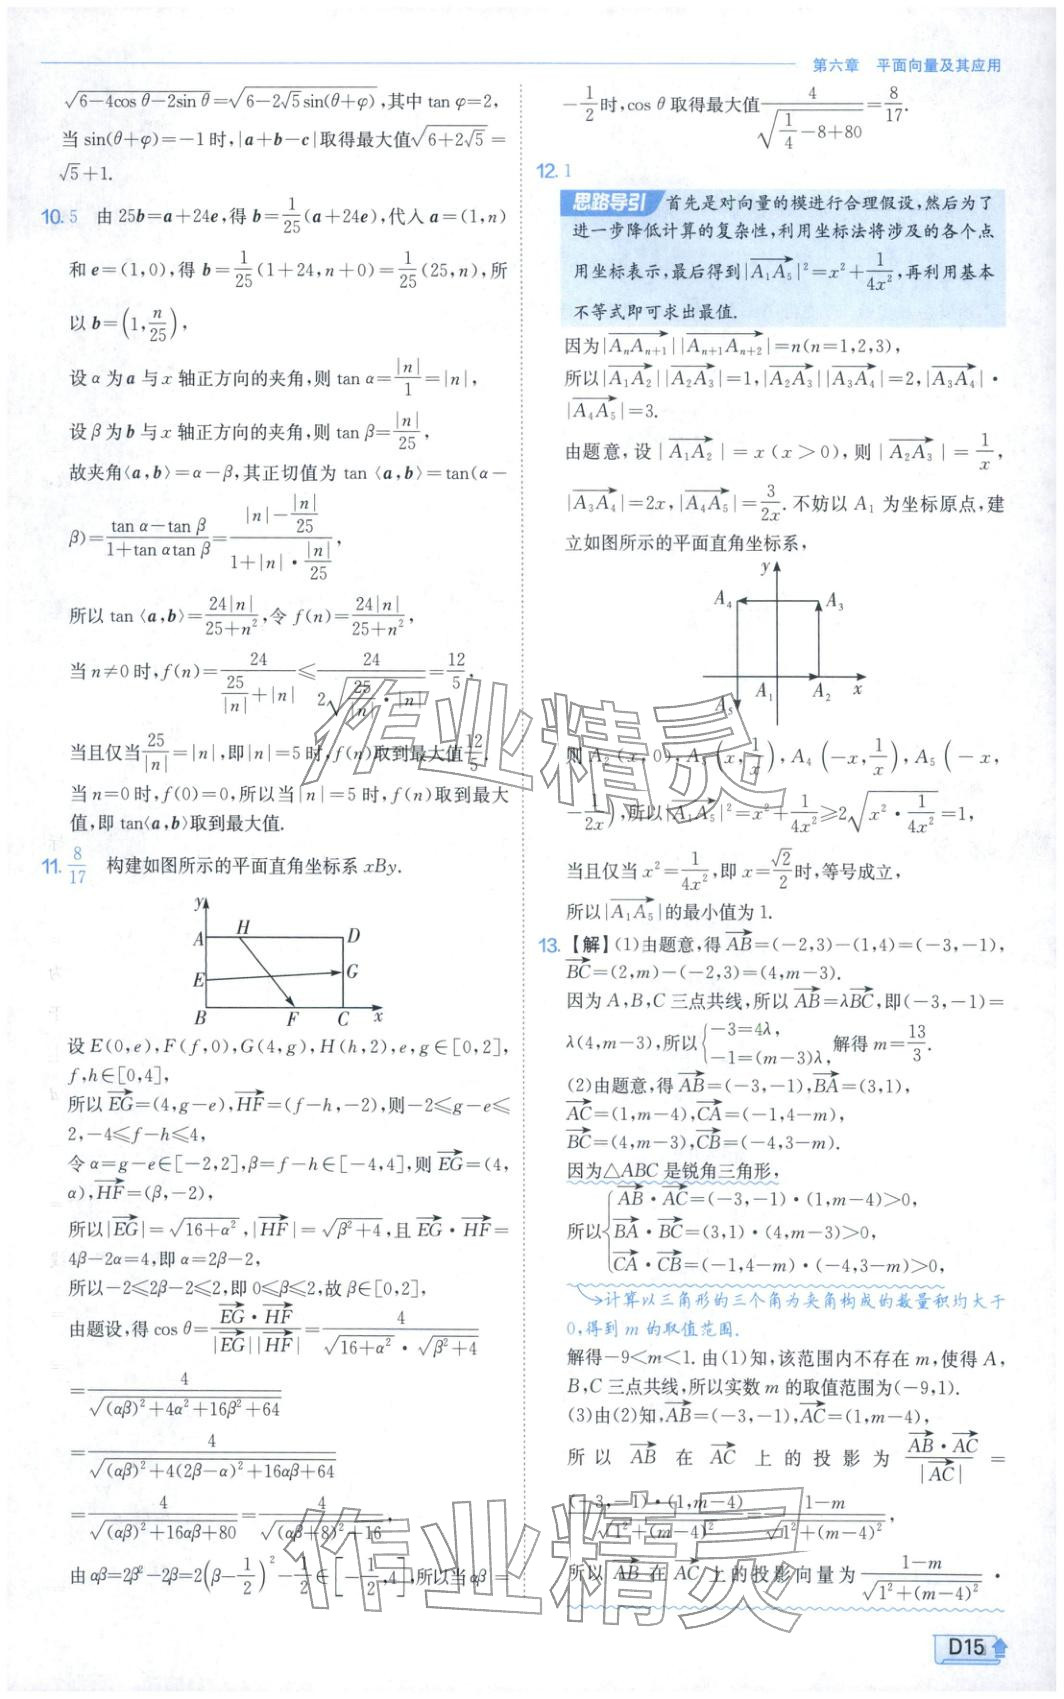 第六章 平面向量及其应用
√(6-4cos θ-2sin θ)=√(6-2√5 sin(θ+φ)),其中 tan φ=2,
当 sin(θ+φ)=-1 时,|a+b-c|取得最大值√(6+2√5)=
√5+1.
10. 5 由 25b=a+24e,得 b=1/25(a+24e),代入 a=(1,n)
和 e=(1,0),得 b=1/25(1+24,n+0)=1/25(25,n),所
以 b=(1,n/25),
设 α 为 a 与 x 轴正方向的夹角,则 tan α=|n|/1=|n|,
设 β 为 b 与 x 轴正方向的夹角,则 tan β=|n|/25,
故夹角⟨a,b⟩=α-β,其正切值为 tan ⟨a,b⟩=tan(α-
β)=(tan α-tan β)/(1+tan αtan β)=(|n|-|n|/25)/(1+|n|·|n|/25),
所以 tan ⟨a,b⟩=24|n|/(25+n²),令 f(n)=24|n|/(25+n²),
当 n≠0 时,f(n)=24/(25/|n|+|n|)≤24/(2√(25/|n|·|n|))=12/5,
当且仅当25/|n|=|n|,即|n|=5 时,f(n)取到最大值12/5.
当 n=0 时,f(0)=0,所以当|n|=5 时,f(n)取到最大
值,即 tan⟨a,b⟩取到最大值.
11. 8/17 构建如图所示的平面直角坐标系 xBy.
y
A H D
E G
B F C x
设 E(0,e),F(f,0),G(4,g),H(h,2),e,g∈[0,2],
f,h∈[0,4],
所以 EG=(4,g-e),HF=(f-h,-2),则-2≤g-e≤
2,-4≤f-h≤4,
令 α=g-e∈[-2,2],β=f-h∈[-4,4],则 EG=(4,
α),HF=(β,-2),
所以|EG|=√(16+α²),|HF|=√(β²+4),且 EG·HF=
4β-2α=4,即 α=2β-2,
所以-2≤2β-2≤2,即 0≤β≤2,故 β∈[0,2],
由题设,得 cos θ=(EG·HF)/(|EG||HF|)=4/(√(16+α²)·√(β²+4))
=4/√((αβ)²+4α²+16β²+64)
=4/√((αβ)²+4(2β-α)²+16αβ+64)
=4/√((αβ)²+16αβ+80)=4/√((αβ+8)²+16),
由 αβ=2β²-2β=2(β-1/2)²-1/2∈[-1/2,4],所以当 αβ=
-1/2时,cos θ 取得最大值4/√(1/4-8+80)=8/17.
12. 1
思路导引 首先是对向量的模进行合理假设,然后为了
进一步降低计算的复杂性,利用坐标法将涉及的各个点
用坐标表示,最后得到|A₁A₅|²=x²+1/(4x²),再利用基本
不等式即可求出最值.
因为|AₙAₙ₊₁||Aₙ₊₁Aₙ₊₂|=n(n=1,2,3),
所以|A₁A₂||A₂A₃|=1,|A₂A₃||A₃A₄|=2,|A₃A₄|·
|A₄A₅|=3.
由题意,设|A₁A₂|=x(x>0),则|A₂A₃|=1/x,
|A₃A₄|=2x,|A₄A₅|=3/(2x).不妨以 A₁ 为坐标原点,建
立如图所示的平面直角坐标系,
y
A₄ A₃
A₁ A₂ x
A₅
则 A₂(x,0),A₃(x,1/x),A₄(-x,1/x),A₅(-x,
-1/(2x)),所以|A₁A₅|²=x²+1/(4x²)≥2√(x²·1/(4x²))=1,
当且仅当 x²=1/(4x²),即 x=√2/2时,等号成立,
所以|A₁A₅|的最小值为 1.
13.【解】(1)由题意,得 AB=(-2,3)-(1,4)=(-3,-1),
BC=(2,m)-(-2,3)=(4,m-3).
因为 A,B,C 三点共线,所以 AB=λBC,即(-3,-1)=
λ(4,m-3),所以{-3=4λ, -1=(m-3)λ, 解得 m=13/3.
(2)由题意,得 AB=(-3,-1),BA=(3,1),
AC=(1,m-4),CA=(-1,4-m),
BC=(4,m-3),CB=(-4,3-m).
因为△ABC 是锐角三角形,
AB·AC=(-3,-1)·(1,m-4)>0,
所以 BA·BC=(3,1)·(4,m-3)>0,
CA·CB=(-1,4-m)·(-4,3-m)>0,
计算以三角形的三个角为夹角构成的数量积均大于
0,得到 m 的取值范围.
解得-9<m<1.由(1)知,该范围内不存在 m,使得 A,
B,C 三点共线,所以实数 m 的取值范围为(-9,1).
(3)由(2)知,AB=(-3,-1),AC=(1,m-4),
所以 AB 在 AC 上的投影为 (AB·AC)/|AC| =
(-3,-1)·(1,m-4)/√(1²+(m-4)²)=(1-m)/√(1²+(m-4)²),
所以 AB 在 AC 上的投影向量为 (1-m)/√(1²+(m-4)²)·
D15
作业精灵
作业精灵